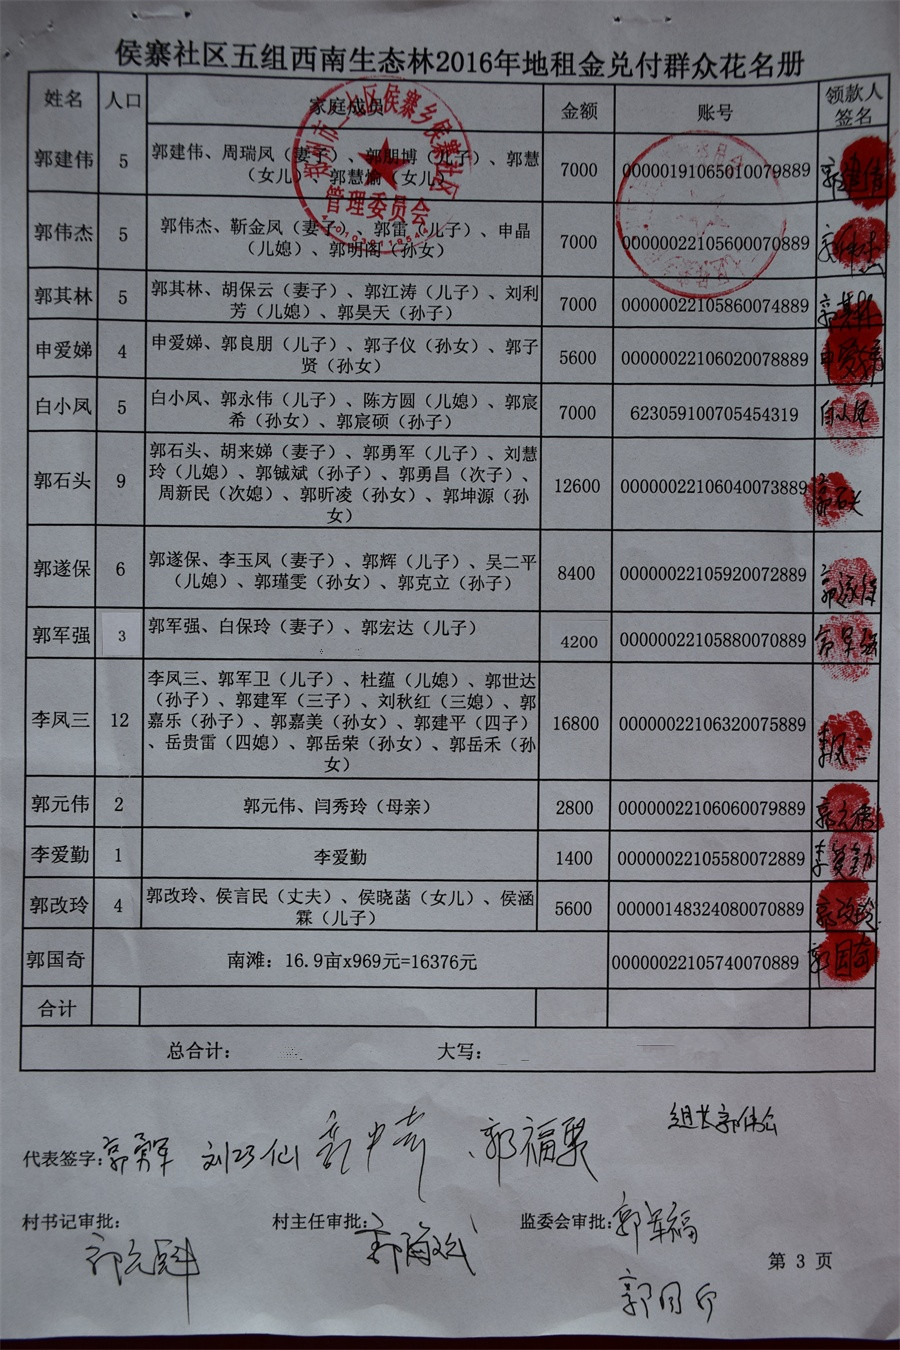 侯寨社区五组西南生态林2016年地租金兑付群众花名册
姓名 人口 家庭成员 金额 账号 领款人
签名
郭建伟 5 郭建伟、周瑞凤（妻子）、郭朋博（儿子）、郭慧
（女儿）、郭慧愉（女儿） 7000 00000191065010079889 郭建伟
郭伟杰 5 郭伟杰、靳金凤（妻子）、郭雷（儿子）、申晶
（儿媳）、郭明阁（孙女） 7000 00000022105600070889 郭伟杰
郭其林 5 郭其林、胡保云（妻子）、郭江涛（儿子）、刘利
芳（儿媳）、郭昊天（孙子） 7000 00000022105860074889 郭其林
申爱娣 4 申爱娣、郭良朋（儿子）、郭子仪（孙女）、郭子
贤（孙女） 5600 00000022106020078889 申爱娣
白小凤 5 白小凤、郭永伟（儿子）、陈方圆（儿媳）、郭宸
希（孙女）、郭宸硕（孙子） 7000 623059100705454319 白小凤
郭石头 9 郭石头、胡来娣（妻子）、郭勇军（儿子）、刘慧
玲（儿媳）、郭铖斌（孙子）、郭勇昌（次子）、
周新民（次媳）、郭昕凌（孙女）、郭坤源（孙
女） 12600 00000022106040073889 郭石头
郭遂保 6 郭遂保、李玉凤（妻子）、郭辉（儿子）、吴二平
（儿媳）、郭瑾雯（孙女）、郭克立（孙子） 8400 00000022105920072889 郭遂保
郭军强 3 郭军强、白保玲（妻子）、郭宏达（儿子） 4200 00000022105880070889 郭军强
李凤三 12 李凤三、郭军卫（儿子）、杜蕴（儿媳）、郭世达
（孙子）、郭建军（三子）、刘秋红（三媳）、郭
嘉乐（孙子）、郭嘉美（孙女）、郭建平（四子）
、岳贵雷（四媳）、郭岳荣（孙女）、郭岳禾（孙
女） 16800 00000022106320075889 李凤三
郭元伟 2 郭元伟、闫秀玲（母亲） 2800 00000022106060079889 郭元伟
李爱勤 1 李爱勤 1400 00000022105580072889 李爱勤
郭改玲 4 郭改玲、侯言民（丈夫）、侯晓菡（女儿）、侯涵
霖（儿子） 5600 00000148324080070889 郭改玲
郭国奇 南滩：16.9亩x969元=16376元 00000022105740070889 郭国奇
合计
总合计： 大写：
组长郭伟公
代表签字：郭勇军 刘巧仙 、郭福聚
村书记审批： 村主任审批： 监委会审批：郭军福
第 3 页
侯寨乡侯寨社区
管理委员会